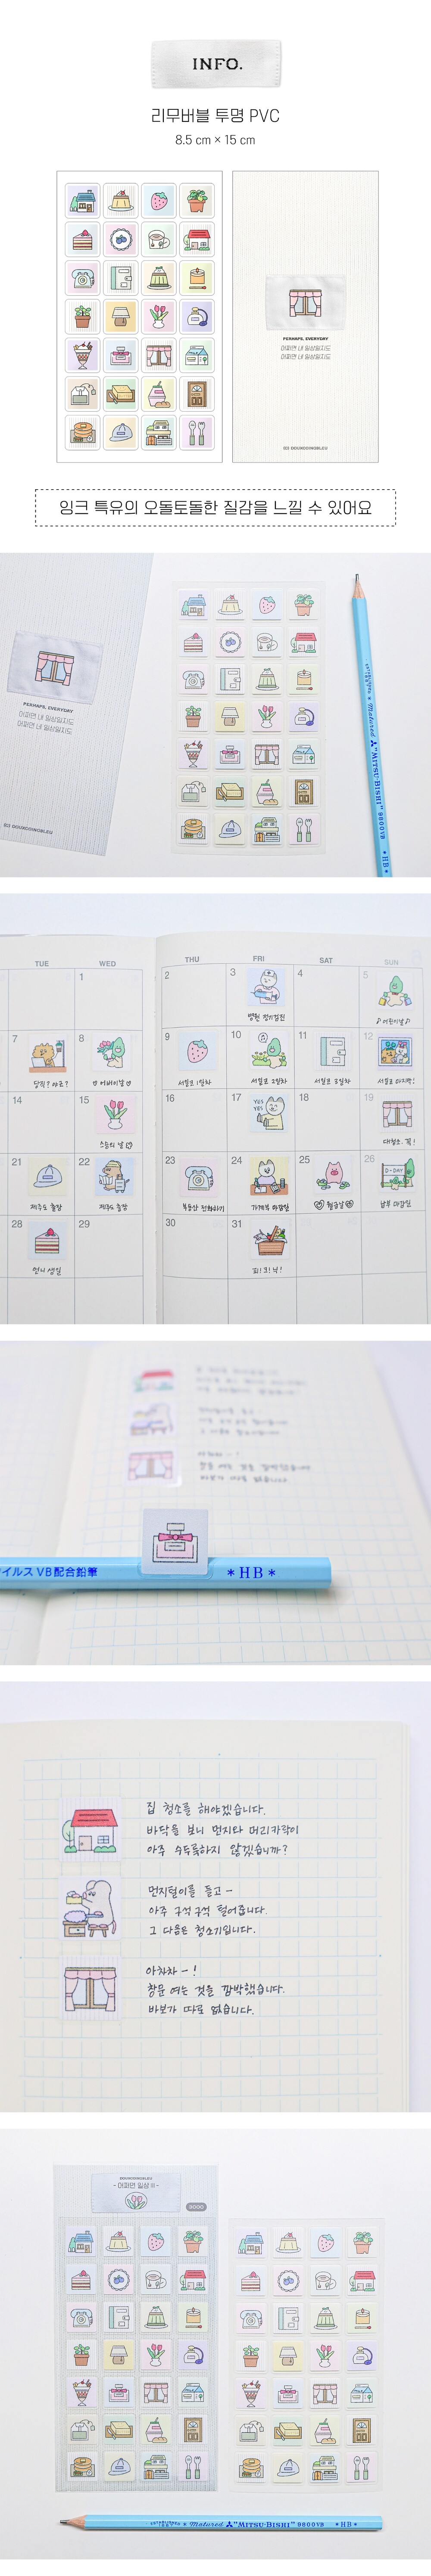 INFO.
리무버블 투명 PVC
8.5 cm × 15 cm
PERHAPS, EVERYDAY
어쩌면 내 일상일지도
어쩌면 내 일상일지도
잉크 특유의 오돌토돌한 질감을 느낄 수 있어요
PERHAPS, EVERYDAY
어쩌면 내 일상일지도
어쩌면 내 일상일지도
Matured "MITSU-BISHI" 9800VB ＊HB＊
TUE WED THU FRI SAT SUN
1 2 3 4 5
병원 정기검진
♪ 어린이날 ♪
7 8 9 10 11 12
당직? 야르?
어버이날
YES YES
14 15 16 17 18 19
스승의 날
대청소. 꼭!
D-DAY
21 22 23 24 25 26
제주도 출장
제주도 출장
가계부 마감일
월급날
납부 마감일
28 29 30 31
언니 생일
피!크!닉!
イルス VB配合鉛筆
＊HB＊
집 청소를 해야겠습니다.
바닥을 보니 먼지와 머리카락이
아주 수두룩하지 않겠습니까?
먼지털이를 들고 -
아주 구석구석 털어줍니다.
그 다음은 청소기입니다.
아차차 - !
창문 여는 것을 깜박했습니다.
바보가 따로 없습니다.
- 어쩌면 일상 -
3000
Matured "MITSU-BISHI" 9800VB ＊HB＊